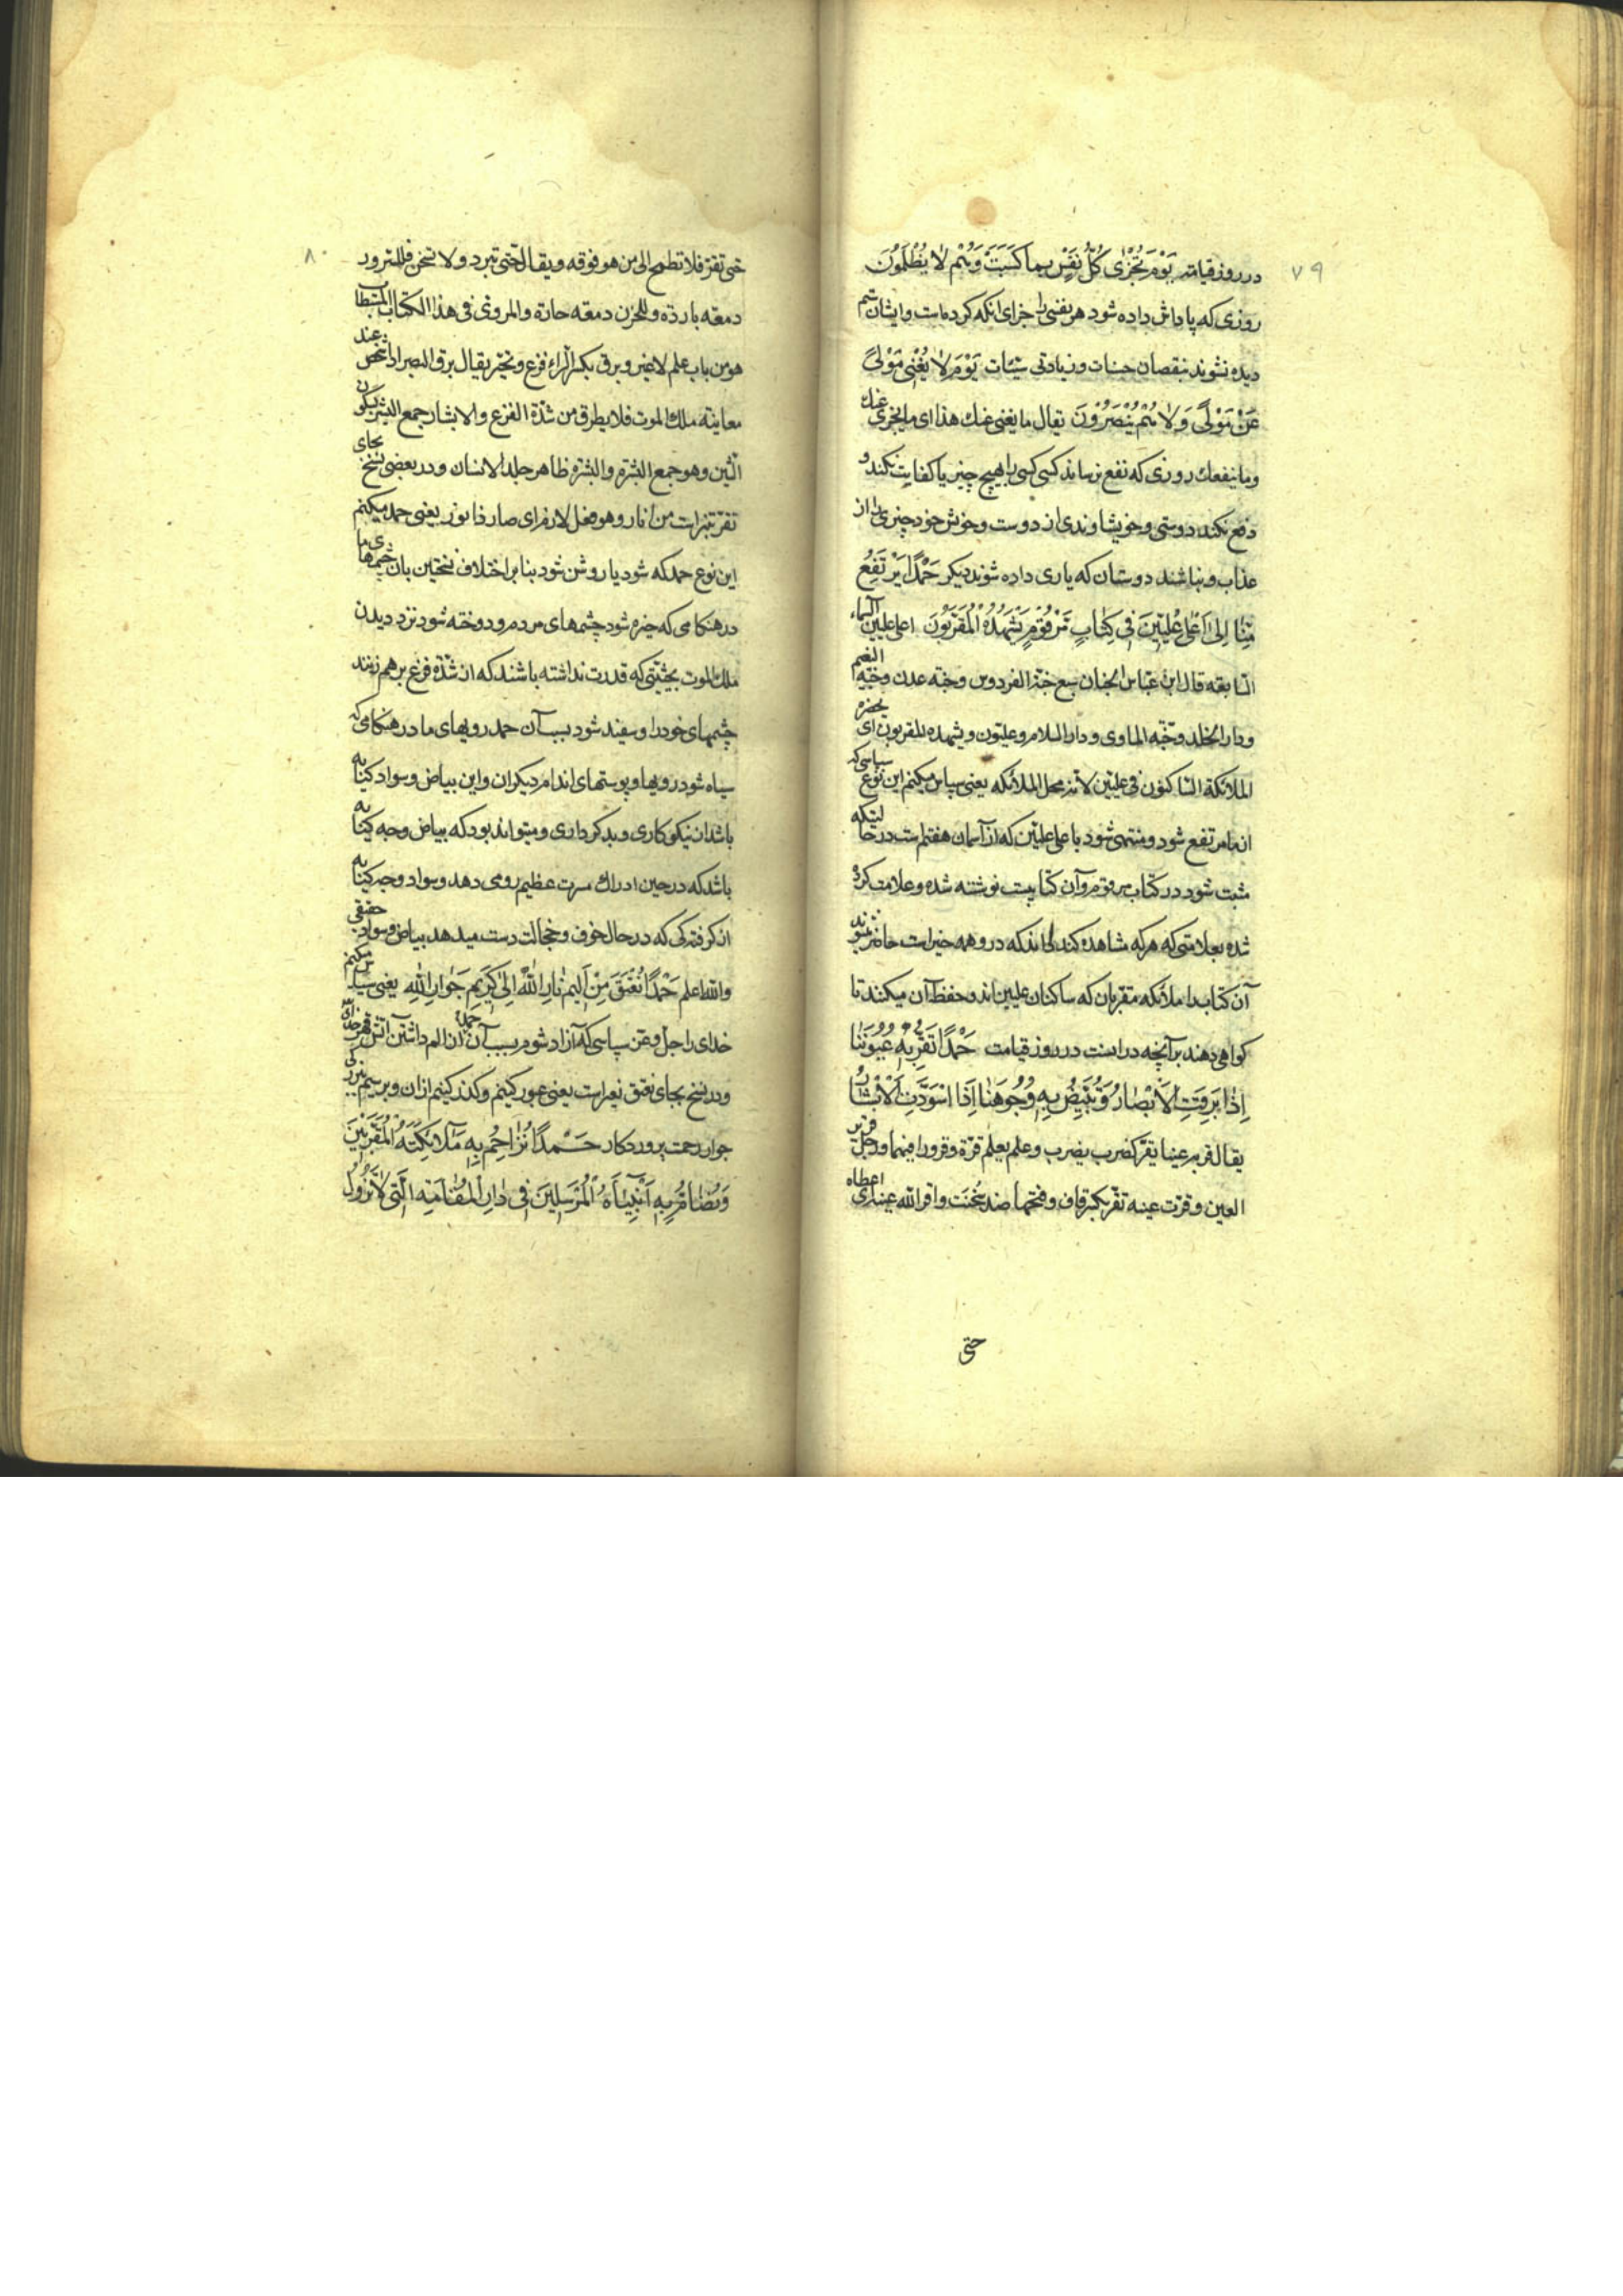 ٧٩
در روز قیامت یَوْمَ تُجْزٰی کُلُّ نَفْسٍ بِما کَسَبَتْ وَ هُمْ لا یُظْلَمُونَ
روزی که پاداش داده شود هر نفسی را جزای انکه کرده است و ایشان ستم
دیده نشوند بنقصان حسنات و زیادتی سیّئات یَوْمَ لا یُغْنی مَوْلیً
عَنْ مَوْلیً وَ لا هُمْ یُنْصَرُونَ یقال ما یغنی عنك هذا ای ما یجزی عنك
و ما ینفعك روزی که نفع نرساند کسی کسی را بهیچ چیز یا کفایت نکند و
دفع نکند دوستی و خویشاوندی از دوست و خویش خود چیزی را از
عذاب و نباشند دوستان که یاری داده شوند دیکر حَمْدًا یَرْتَفِعُ
مِنّا اِلیٰ اَعْلیٰ عِلِّیّینَ فی کِتابٍ مَرْقُومٍ یَشْهَدُهُ الْمُقَرَّبُونَ اعلی علیین السماء
السابعه قال ابن عباس الجنان سبع جنّة الفردوس و جنّه عدن و جنّه النعیم
و دار الخلد و جنّه الماوی و دار السلام و علیّون و یشهده المقربون ای یحضره
الملائکة الساکنون فی علیین لانه محل الملائکه یعنی سپاس میکنم این نوع سپاسی که
از ما مرتفع شود و منتهی شود باعلی علیّین که از آسمان هفتم است در حالتیکه
مثبت شود در کتاب مرقوم و آن کتابیست نوشته شده و علامت کرده
شده بعلامتی که هرکه مشاهده کند بداند که در و همه خیر است حاضر شوند
آن کتاب را ملائکه مقربان که ساکنان علیین اند و حفظ آن میکنند تا
کواهی دهند بر آنچه در انست در روز قیامت حَمْدًا تَقَرُّ بِهِ عُیُونُنا
اِذا بَرِقَتِ الْاَبْصارُ وَ تَبْیَضُّ بِهِ وُجُوهُنا اِذَا اسْوَدَّتِ الْاَبْشارُ
یقال قر به عینا یقر کضرب یضرب و علم یعلم قرّة و قرورا فیهما و رجل قریر
العین و قرت عینه تقر بکسر قاف و فتحها ضد سخنت و اقر الله عینه ای اعطاه
حتی
٨٠
حتی تقر فلا تطمح الی من هو فوقه و یقال حتی تبرد و لا تسخن فللسرور
دمعه بارده و للحزن دمعه حارة و المروی فی هذا الکتاب المستطاب
هو من باب علم لا غیر و برق بکسر الراء فزع و تحیّر یقال برق البصر اذا شخص عند
معاینه ملك الموت فلا یطرق من شدّة الفزع و الابشار جمع البشر بسکون
الشین و هو جمع البشره و البشره ظاهر جلد الانسان و در بعضی نسخ بجای
تقر تنیر است من انار و هو فعل لازم ای صار ذا نور یعنی حمد میکنم
این نوع حمد که شود یا روشن شود بنا بر اختلاف نسختین بان چشمهای ما
در هنکامی که خیره شود چشمهای مردم و دوخته شود نزد دیدن
ملك الموت بحیثیتی که قدرت نداشته باشند که از شدّة فزع بر هم زنند
چشمهای خود را و سفید شود بسبب آن حمد رویهای ما در هنکامی که
سیاه شود رویها و پوستهای اندام دیکران و این بیاض و سواد کنایه
باشد از نیکوکاری و بدکرداری و میتواند بود که بیاض وجه کنایه
باشد که در حین ادراك مسرت عظیم رو می دهد و سواد وجه کنایه
از کرفتکی که در حال خوف و خجالت دست میدهد یا بیاض و سواد حقیقی
و الله اعلم حَمْدًا نُعْتَقُ مِنْ اَلیمِ نارِ اللهِ اِلیٰ کَریمِ جَوارِ اللهِ یعنی سپاس میکنم
خدای را جل و عز سپاسی که آزاد شوم بسبب آن حمد از الم داشتن آتش قهر خدای
و در نسخ بجای نعتق نعبر است یعنی عبور کنیم و کذر کنیم از ان و برسیم ببزرکی
جوار رحمت پروردکار حَمْدًا نُزاحِمُ بِهِ مَلائِکَتَهُ الْمُقَرَّبینَ
وَ نُضامُّ بِهِ اَنْبِیاءَهُ الْمُرْسَلینَ فی دارِ الْمُقامَةِ الَّتی لا تَزُولُ